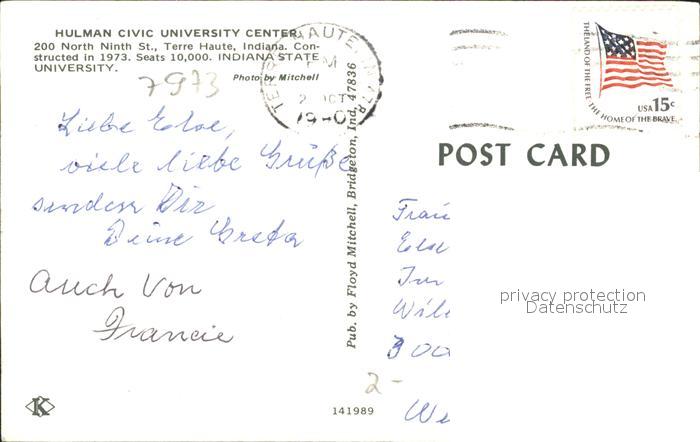 HULMAN CIVIC UNIVERSITY CENTER
200 North Ninth St., Terre Haute, Indiana. Con-
structed in 1973. Seats 10,000. INDIANA STATE
UNIVERSITY.
Photo by Mitchell
7973
Liebe Else,
viele liebe Grüße
senden Dir
Deine Greta
Auch Von
Francie
K
Pub. by Floyd Mitchell, Bridgeton, Ind. 47836
141989
TERRE HAUTE, IN
PM
OCT
THE LAND OF THE FREE THE HOME OF THE BRAVE
USA 15c
POST CARD
Else
privacy protection
Datenschutz
2-